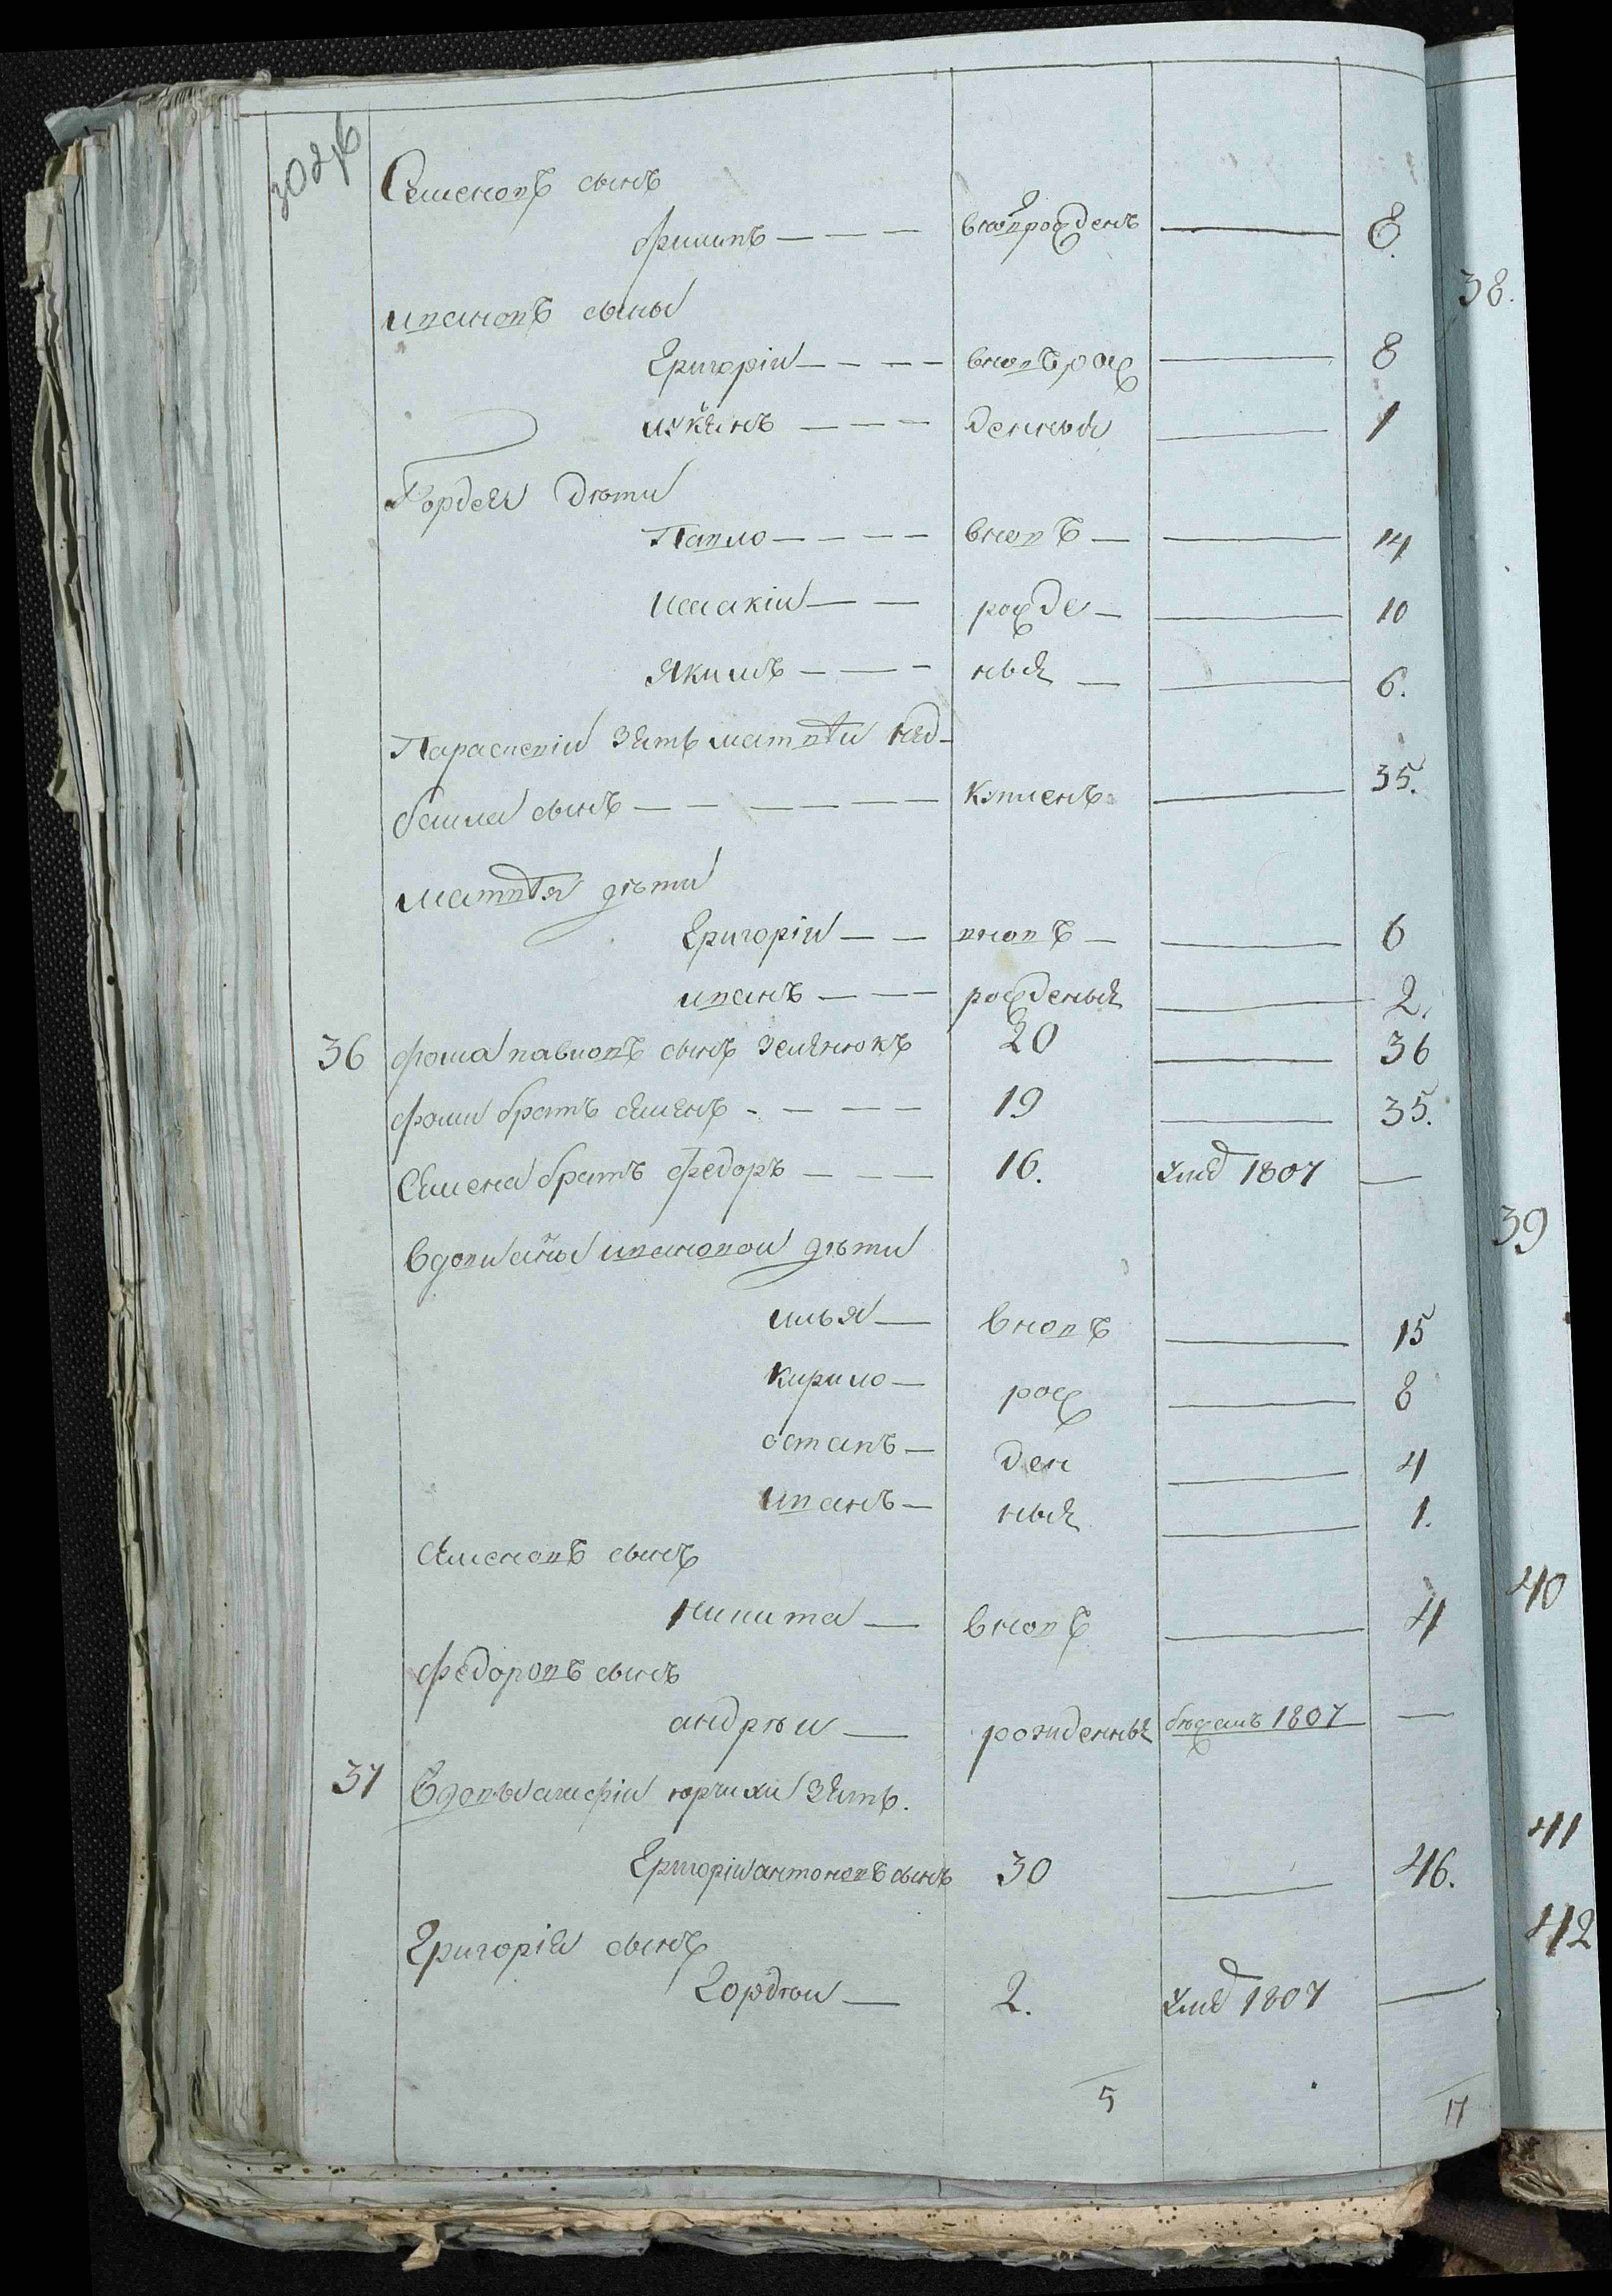 302 об
Семеновъ сынъ
Филипъ — — — вновъ рожденъ — 8.
ивановъ сыны
Григорій — — — вновь рож — 8
денныи — 1
Гордея дѣти
Павло — — — вновъ — — 14
Исакій — — рожде — — 10
Якимъ — — — ныя — — 6.
Параскевіи зять матвѣи
сынъ — — — — — купленъ — 35.
матвѣя дѣти
Григорій — — вновъ — — 6
иванъ — — — рожденыя — 2.
36 фома павловъ сынъ Земенюкъ 20 — 36
фомы братъ семенъ - — — — 19 — 35.
Семена братъ федоръ — — — 16. умеръ 1807 —
вдовы анны ивановои дѣти
илья — вновъ — 15
кирило — рож — 8
остапъ — ден — 4
иванъ — ныя — 1.
Семеновъ сынъ
никита — вновъ — 4
федоровъ сынъ
андрѣи — рожденныя бѣжалъ 1807 —
37 вдовы агафіи юрчихи зять.
Григоріи антоновъ сынъ 30 — 46.
Григорія сынъ
Гордѣи — 2. умеръ 1807 —
5 17
38.
39
40
41
42